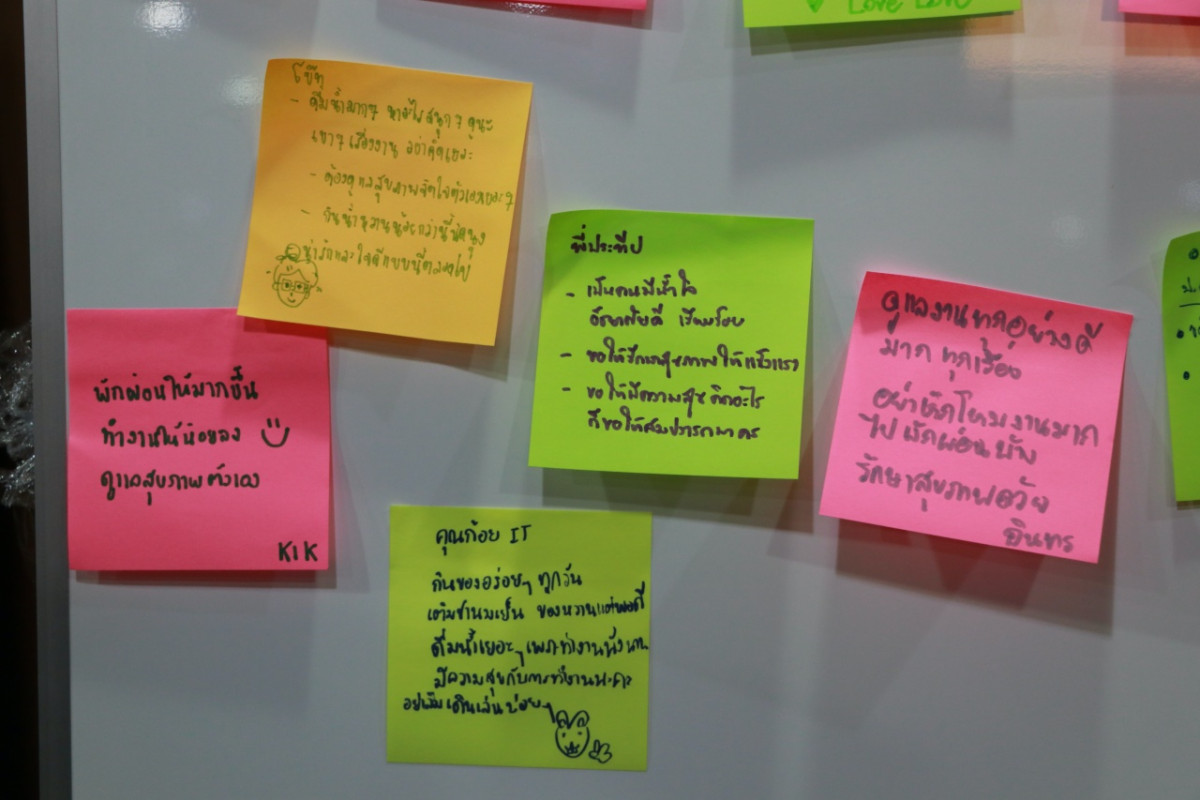 Love Love
- ดื่มน้ำมากๆ หาอะไรสนุกๆ ดูนะ
เบาๆ เรื่องงาน อย่าคิดเยอะ
- ต้องดูแลสุขภาพจิตใจตัวเองเยอะๆ
- กินน้ำหวานน้อยกว่านี้นิดนุง
น่ารักและใจดีแบบนี้ตลอดไป
พี่ประทีป
- เป็นคนมีน้ำใจ
อัธยาศัยดี เรียบร้อย
- ขอให้รักษาสุขภาพให้แข็งแรง
- ขอให้มีความสุข คิดอะไร
ก็ขอให้สมปรารถนา
ดูแลงานทุกอย่างดี
มาก ทุกเรื่อง
อย่าหักโหมงานมาก
ไป พักผ่อนบ้าง
รักษาสุขภาพด้วย
อินทร
พักผ่อนให้มากขึ้น
ทำงานให้น้อยลง
ดูแลสุขภาพตัวเอง
KIK
คุณก้อย IT
กินของอร่อยๆ ทุกวัน
เติมชานมเย็น ของหวานแต่พอดี
ดื่มน้ำเยอะๆ เพราะทำงานนั่งนาน
มีความสุขกับการทำงานนะคะ
อย่าลืมเดินเล่นบ่อยๆ